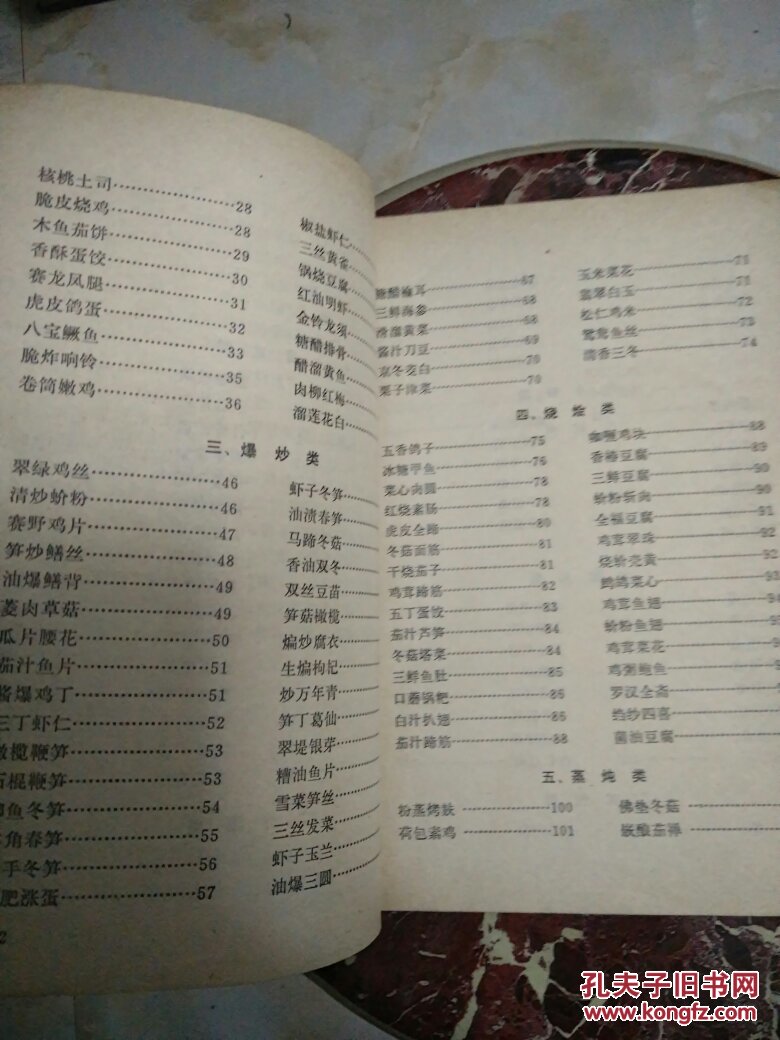 核桃土司……28
脆皮烧鸡……28
木鱼茄饼……29
香酥蛋饺……30
赛龙凤腿……31
虎皮鸽蛋……32
八宝鳜鱼……33
脆炸响铃……35
卷筒嫩鸡……36
椒盐虾仁……
三丝黄雀……
锅烧豆腐……
红油明虾……
金铃龙须……
糖醋排骨……
醋溜黄鱼……
肉柳红梅……
溜莲花白……
三、爆炒类
翠绿鸡丝……46
清炒蚧粉……46
赛野鸡片……47
笋炒鳝丝……48
油爆鳝背……49
菱肉草菇……49
瓜片腰花……50
茄汁鱼片……51
酱爆鸡丁……51
三丁虾仁……52
橄榄鞭笋……53
石棍鞭笋……53
鱼冬笋……54
角春笋……55
手冬笋……56
肥涨蛋……57
虾子冬笋……
油渍春笋……
马蹄冬菇……
香油双冬……
双丝豆苗……
笋菇橄榄……
煸炒腐衣……
生煸枸杞……
炒万年青……
笋丁葛仙……
翠堤银芽……
糟油鱼片……
雪菜笋丝……
三丝发菜……
虾子玉兰……
油爆三圆……
2
糖醋 耳……67
三鲜海参……68
滑溜黄菜……68
酱汁刀豆……69
京冬茭白……70
栗子 菜……70
玉米菜花……71
翡翠白玉……71
松仁鸡米……72
鸳鸯鱼丝……73
茜香三冬……74
四、烧烩类
五香鸽子……75
冰糖甲鱼……76
菜心肉圆……78
红烧素肠……78
虎皮全蹄……80
冬菇面筋……81
干烧茄子……81
鸡茸蹄筋……82
五丁蛋饺……83
茄汁芦笋……84
冬菇塔菜……84
三鲜鱼肚……85
口蘑锅粑……86
白汁扒翅……86
茄汁蹄筋……88
咖喱鸡块……88
香椿豆腐……89
三鲜豆腐……90
蚧粉 肉……90
全福豆腐……91
鸡茸翠珠……91
烧蚧壳黄……92
鹧鸪菜心……92
鸡茸鱼翅……94
蚧粉鱼翅……
鸡茸菜花……
鸡粥鲍鱼……
罗汉全斋……
绉纱四喜……
菌油豆腐……
五、蒸炖类
粉蒸烤麸……100
荷包素鸡……101
佛垫冬菇……
酿茄……
孔夫子旧书网
www.kongfz.com